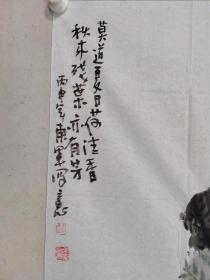 莫道夏日荷佳香
秋来残叶亦有芳
丙申年東军写意